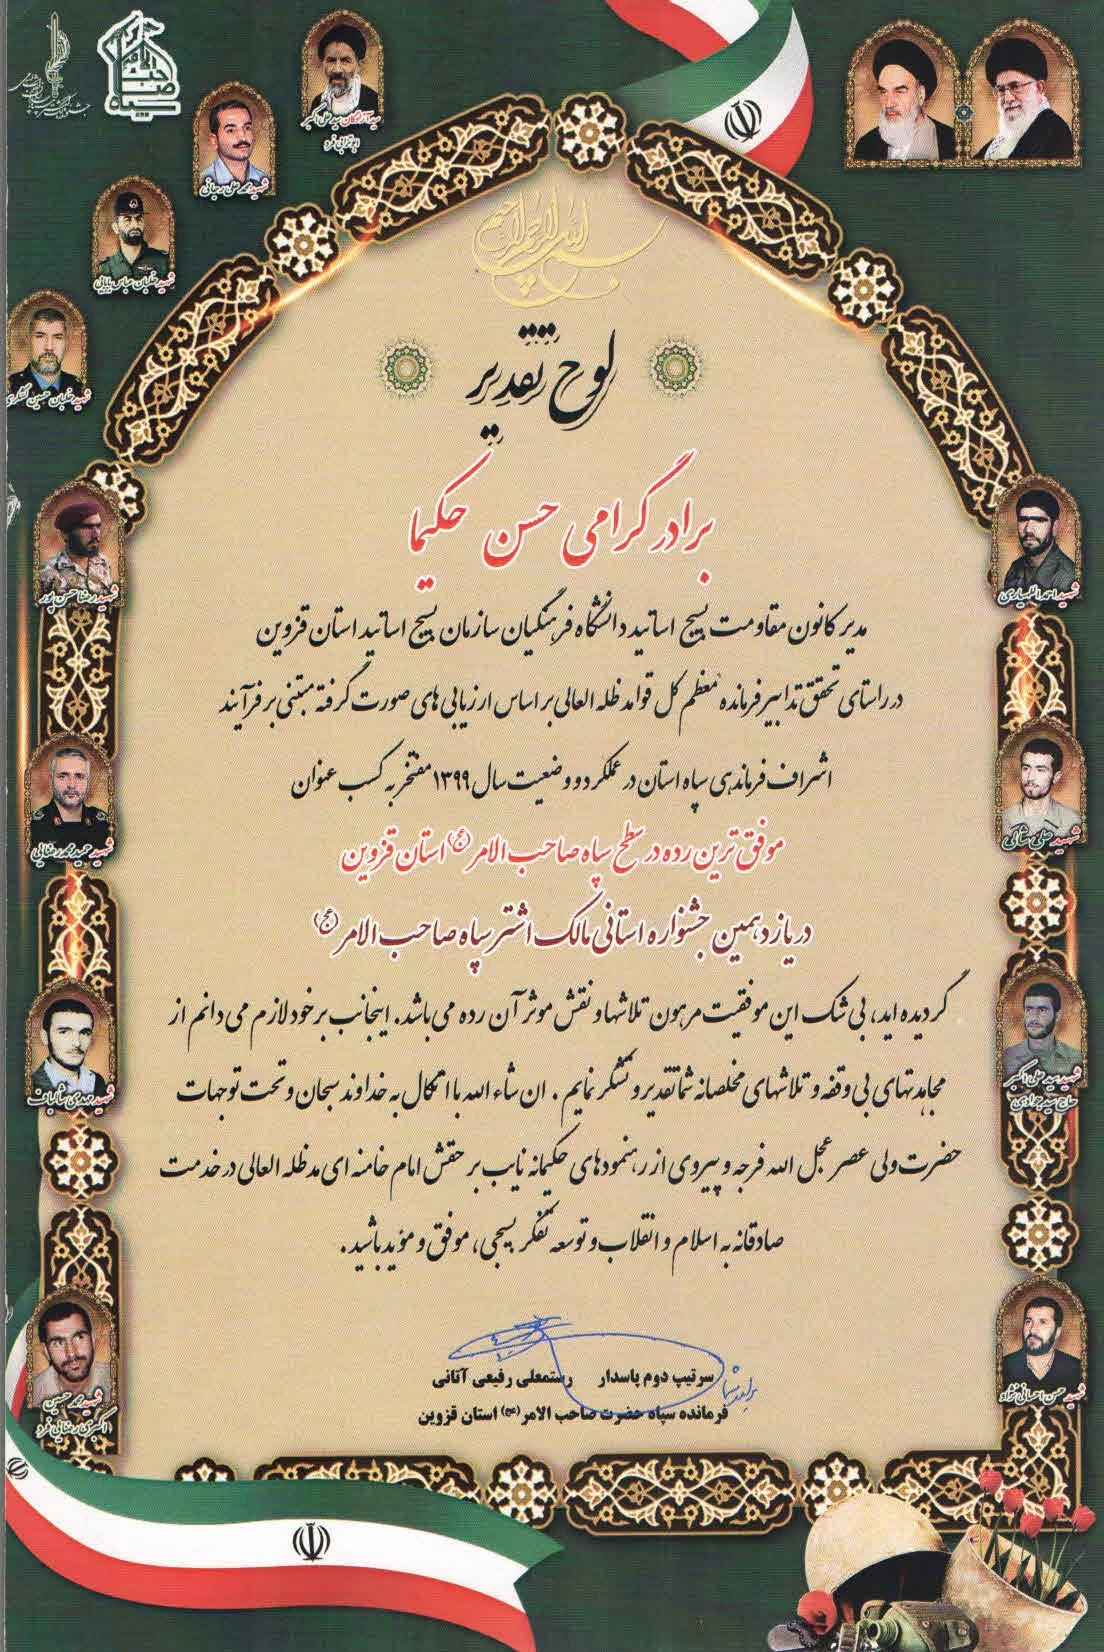 سید آزادگان سید علی اکبر
ابوترابی فرد
شهید محمد علی رجائی
شهید خلبان عباس بابایی
شهید خلبان حسین لشکری
بسم الله الرحمن الرحیم
لوح تقدیر
برادر گرامی حسن حکیما
شهید رضا حسن پور
شهید احمد اللهیاری
مدیر کانون مقاومت بسیج اساتید دانشگاه فرهنگیان سازمان بسیج اساتید استان قزوین
در راستای تحقق تدابیر فرمانده معظم کل قوا مد ظله العالی بر اساس ارزیابی های صورت گرفته مبتنی بر فرآیند
اشراف فرماندهی سپاه استان در عملکرد و وضعیت سال ۱۳۹۹ مفتخر به کسب عنوان
موفق ترین رده در سطح سپاه صاحب الامر (عج) استان قزوین
شهید حمید محمد رضایی
شهید علی شاکی
در یازدهمین جشنواره استانی مالک اشتر سپاه صاحب الامر (عج)
گردیده اید، بی شک این موفقیت مرهون تلاشها و نقش موثر آن رده می باشد. اینجانب بر خود لازم می دانم از
مجاهدتهای بی وقفه و تلاشهای مخلصانه شما تقدیر و تشکر نمایم. ان شاء الله با اتکال به خداوند سبحان و تحت توجهات
شهید مهدی شالباف
شهید سید علی اکبر
حاج سید جوادی
حضرت ولی عصر عجل الله فرجه و پیروی از رهنمودهای حکیمانه نایب بر حقش امام خامنه ای مد ظله العالی در خدمت
صادقانه به اسلام و انقلاب و توسعه تفکر بسیجی، موفق و موید باشید.
سرتیپ دوم پاسدار رستمعلی رفیعی آتانی
فرمانده سپاه حضرت صاحب الامر (عج) استان قزوین
شهید محمد حسین
اکبری رضایی فرد
شهید حسن احسانی نژاد